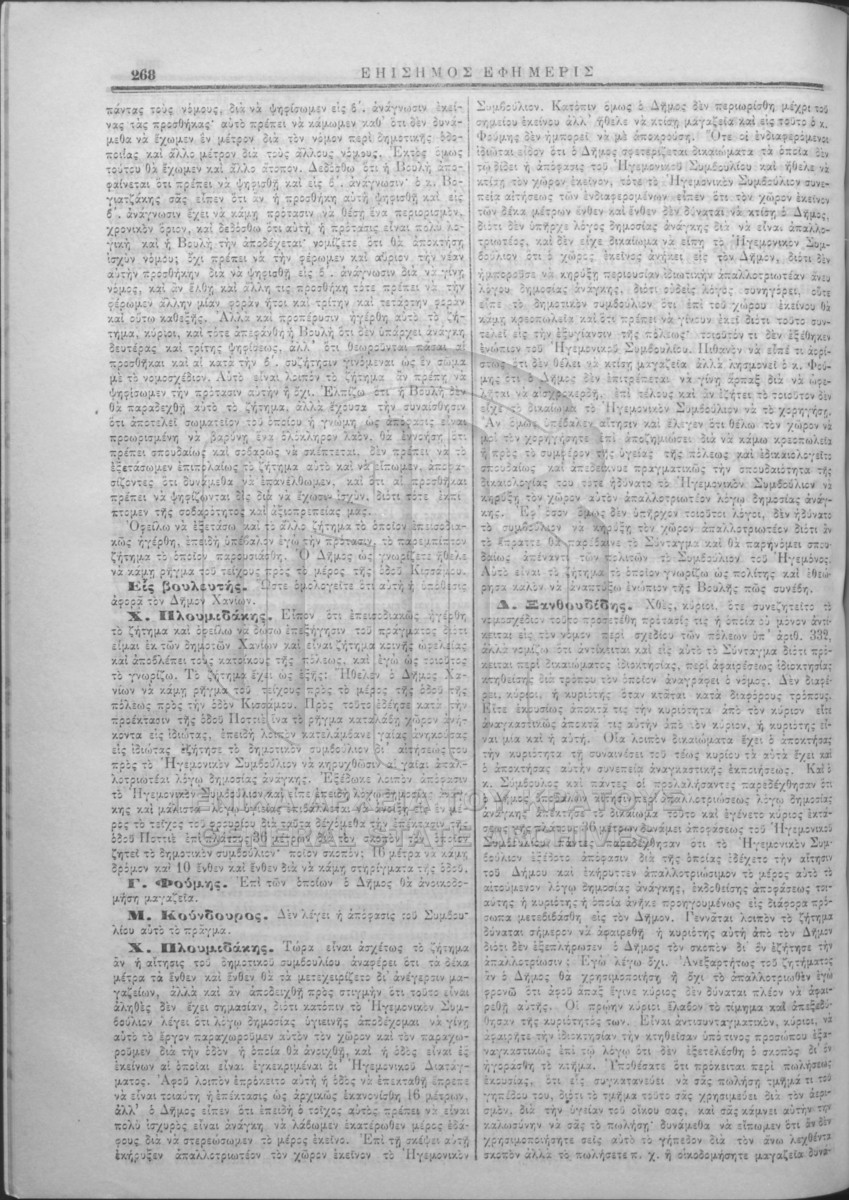 268
ΕΠΙΣΗΜΟΣ ΕΦΗΜΕΡΙΣ
πάντας τοὺς νόμους, διὰ νὰ ψηφίσωμεν εἰς β΄. ἀνάγνωσιν ἐκεί-
νας τὰς προσθήκας· αὐτὸ πρέπει νὰ κάμωμεν καθ᾿ ὅτι δὲν δυνά-
μεθα νὰ ἔχωμεν ἓν μέτρον διὰ τὸν νόμον περὶ δημοτικῆς ὁδο-
ποιΐας καὶ ἄλλο μέτρον διὰ τοὺς ἄλλους νόμους. Ἐκτὸς ὅμως
τούτου θὰ ἔχωμεν καὶ ἄλλο ἄτοπον. Δεδόσθω ὅτι ἡ Βουλὴ ἀπο-
φαίνεται ὅτι πρέπει νὰ ψηφισθῇ καὶ εἰς β΄. ἀνάγνωσιν· ὁ κ. Βο-
γιατζάκης σᾶς εἶπεν ὅτι ἂν ἡ προσθήκη αὐτὴ ψηφισθῇ καὶ εἰς
β΄. ἀνάγνωσιν ἔχει νὰ κάμῃ πρότασιν νὰ θέσῃ ἕνα περιορισμόν,
χρονικὸν ὅριον, καὶ δεδόσθω ὅτι αὐτὴ ἡ πρότασις εἶναι πολὺ λο-
γικὴ καὶ ἡ Βουλὴ τὴν ἀποδέχεται· νομίζετε ὅτι θὰ ἀποκτήσῃ
ἰσχὺν νόμου; ὄχι πρέπει νὰ τὴν φέρωμεν καὶ αὔριον τὴν νέαν
αὐτὴν προσθήκην διὰ νὰ ψηφισθῇ εἰς β΄. ἀνάγνωσιν διὰ νὰ γίνῃ
νόμος, καὶ ἂν ἔλθῃ καὶ ἄλλη τις προσθήκη τότε πρέπει νὰ τὴν
φέρωμεν ἄλλην μίαν φορὰν ἤτοι καὶ τρίτην καὶ τετάρτην φορὰν
καὶ οὕτω καθεξῆς. Ἀλλὰ καὶ προπέρυσιν ἠγέρθη αὐτὸ τὸ ζή-
τημα, κύριοι, καὶ τότε ἀπεφάνθη ἡ Βουλὴ ὅτι δὲν ὑπάρχει ἀνάγκη
δευτέρας καὶ τρίτης ψηφίσεως, ἀλλ᾿ ὅτι θεωροῦνται πᾶσαι αἱ
προσθῆκαι καὶ αἱ κατὰ τὴν β΄. συζήτησιν γινόμεναι ὡς ἓν σῶμα
μὲ τὸ νομοσχέδιον. Αὐτὸ εἶναι λοιπὸν τὸ ζήτημα ἂν πρέπῃ νὰ
ψηφίσωμεν τὴν πρότασιν αὐτὴν ἢ ὄχι. Ἐλπίζω ὅτι ἡ Βουλὴ δὲν
θὰ παραδεχθῇ αὐτὸ τὸ ζήτημα, ἀλλὰ ἔχουσα τὴν συναίσθησιν
ὅτι ἀποτελεῖ σωματεῖον τοῦ ὁποίου ἡ γνώμη ὡς ἀπόφασις εἶναι
προωρισμένη νὰ βαρύνῃ ἕνα ὁλόκληρον λαόν, θὰ ἐννοήσῃ ὅτι
πρέπει σπουδαίως καὶ σοβαρῶς νὰ σκέπτεται. δὲν πρέπει νὰ τὸ
ἐξετάσωμεν ἐπιπολαίως τὸ ζήτημα αὐτὸ καὶ νὰ εἴπωμεν, ἀποφα-
σίζοντες ὅτι δυνάμεθα νὰ ἐπανέλθωμεν, καὶ ὅτι αἱ προσθῆκαι
πρέπει νὰ ψηφίζωνται δὶς διὰ νὰ ἔχωσιν ἰσχύν, διότι τότε ἐκπί-
πτομεν τῆς σοβαρότητος καὶ ἀξιοπρεπείας μας.
Ὀφείλω νὰ ἐξετάσω καὶ τὸ ἄλλο ζήτημα τὸ ὁποῖον ἐπεισοδια-
κῶς ἠγέρθη, ἐπειδὴ ὑπέβαλον ἐγὼ τὴν πρότασιν, τὸ παρεμπῖπτον
ζήτημα τὸ ὁποῖον παρουσιάσθη. Ὁ Δῆμος ὡς γνωρίζετε ἤθελε
νὰ κάμῃ ρῆγμα τοῦ τείχους πρὸς τὸ μέρος τῆς ὁδοῦ Κισσάμου.
Εἷς βουλευτής. Ὥστε ὁμολογεῖτε ὅτι αὐτὴ ἡ ὑπόθεσις
ἀφορᾷ τὸν Δῆμον Χανίων.
Χ. Πλουμιδάκης. Εἶπον ὅτι ἐπεισοδιακῶς ἠγέρθη
τὸ ζήτημα καὶ ὀφείλω νὰ δώσω ἐπεξήγησιν τοῦ πράγματος διότι
εἶμαι ἐκ τῶν δημοτῶν Χανίων καὶ εἶναι ζήτημα κοινῆς ὠφελείας
καὶ ἀποβλέπει τοὺς κατοίκους τῆς πόλεως, καὶ ἐγὼ ὡς τοιοῦτος
τὸ γνωρίζω. Τὸ ζήτημα ἔχει ὡς ἑξῆς: Ἤθελεν ὁ Δῆμος Χα-
νίων νὰ κάμῃ ρῆγμα τοῦ τείχους πρὸς τὸ μέρος τῆς ὁδοῦ τῆς
πόλεως πρὸς τὴν ὁδὸν Κισσάμου. Πρὸς τοῦτο ἐδέησε κατὰ τὴν
προέκτασιν τῆς ὁδοῦ Ποττιὲ ἵνα τὸ ρῆγμα καταλάβῃ χῶρον ἀνή-
κοντα εἰς ἰδιώτας, ἐπειδὴ λοιπὸν κατελάμβανε γαίας ἀνηκούσας
εἰς ἰδιώτας ἐζήτησε τὸ δημοτικὸν συμβούλιον δι᾿ αἰτήσεώς του
πρὸς τὸ Ἡγεμονικὸν Συμβούλιον νὰ κηρυχθῶσιν αἱ γαῖαι ἀπαλ-
λοτριωτέαι λόγῳ δημοσίας ἀνάγκης. Ἐξέδωκε λοιπὸν ἀπόφασιν
τὸ Ἡγεμονικὸν Συμβούλιον καὶ εἶπε ἐπειδὴ λόγῳ δημοσίας ἀνάγ-
κης καὶ μάλιστα λόγῳ ὑγιείας ἐπιβάλλεται νὰ ἀνοιχθῇ εἰς ἓν μέ-
ρος τὸ τεῖχος τοῦ φρουρίου διὰ ταῦτα δεχόμεθα τὴν ἐπέκτασιν τῆς
ὁδοῦ Ποττιὲ ἐπὶ πλάτους 36 μέτρων διὰ τὸν σκοπὸν τὸν ὁποῖον
ζητεῖ τὸ δημοτικὸν συμβούλιον· ποῖον σκοπόν; 16 μέτρα νὰ κάμῃ
δρόμον καὶ 10 ἔνθεν καὶ ἔνθεν διὰ νὰ κάμῃ στηρίγματα τῆς ὁδοῦ,
Γ. Φούμης. Ἐπὶ τῶν ὁποίων ὁ Δῆμος θὰ ἀνοικοδο-
μήσῃ μαγαζεῖα.
Μ. Κούνδουρος. Δὲν λέγει ἡ ἀπόφασις τοῦ Συμβου-
λίου αὐτὸ τὸ πρᾶγμα.
Χ. Πλουμιδάκης. Τώρα εἶναι ἀσχέτως τὸ ζήτημα
ἂν ἡ αἴτησις τοῦ δημοτικοῦ συμβουλίου ἀναφέρει ὅτι τὰ δέκα
μέτρα τὰ ἔνθεν καὶ ἔνθεν θὰ τὰ μετεχειρίζετο δι᾿ ἀνέγερσιν μα-
γαζείων, ἀλλὰ καὶ ἂν ἀποδειχθῇ πρὸς στιγμὴν ὅτι τοῦτο εἶναι
ἀληθὲς δὲν ἔχει σημασίαν, διότι κατόπιν τὸ Ἡγεμονικὸν Συμ-
βούλιον λέγει ὅτι λόγῳ δημοσίας ὑγιεινῆς ἀποδέχομαι νὰ γίνῃ
αὐτὸ τὸ ἔργον παραχωροῦμεν αὐτὸν τὸν χῶρον καὶ τὸν παραχω-
ροῦμεν διὰ τὴν ὁδὸν ἡ ὁποία θὰ ἀνοιχθῇ, καὶ ἡ ὁδὸς εἶναι ἐξ
ἐκείνων αἱ ὁποῖαι εἶναι ἐγκεκριμέναι δι᾿ Ἡγεμονικοῦ Διατάγ-
ματος. Ἀφοῦ λοιπὸν ἐπρόκειτο αὐτὴ ἡ ὁδὸς νὰ ἐπεκταθῇ ἔπρεπε
νὰ εἶναι τοιαύτη ἡ ἐπέκτασις ὡς ἀρχικῶς ἐκανονίσθη 16 μέτρων,
ἀλλ᾿ ὁ Δῆμος εἶπεν ὅτι ἐπειδὴ ὁ τοῖχος αὐτὸς πρέπει νὰ εἶναι
πολὺ ἰσχυρὸς εἶναι ἀνάγκη νὰ λάβωμεν ἑκατέρωθεν μέρος ἐδά-
φους διὰ νὰ στερεώσωμεν τὸ μέρος ἐκεῖνο. Ἐπὶ τῇ σκέψει αὐτῇ
ἐκήρυξεν ἀπαλλοτριωτέον τὸν χῶρον ἐκεῖνον τὸ Ἡγεμονικὸν
Συμβούλιον. Κατόπιν ὅμως ὁ Δῆμος δὲν περιωρίσθη μέχρι τοῦ
σημείου ἐκείνου ἀλλ᾿ ἤθελε νὰ κτίσῃ μαγαζεῖα καὶ εἰς τοῦτο ὁ κ.
Φούμης δὲν ἠμπορεῖ νὰ μὲ ἀποκρούσῃ. Ὅτε οἱ ἐνδιαφερόμενοι
ἰδιῶται εἶδον ὅτι ὁ Δῆμος σφετερίζεται δικαιώματα τὰ ὁποῖα δὲν
τῷ δίδει ἡ ἀπόφασις τοῦ Ἡγεμονικοῦ Συμβουλίου καὶ ἤθελε νὰ
κτίσῃ τὸν χῶρον ἐκεῖνον, τότε τὸ Ἡγεμονικὸν Συμβούλιον συνε-
πείᾳ αἰτήσεως τῶν ἐνδιαφερομένων εἶπεν ὅτι τὸν χῶρον ἐκεῖνον
τῶν δέκα μέτρων ἔνθεν καὶ ἔνθεν δὲν δύναται νὰ κτίσῃ ὁ Δῆμος,
διότι δὲν ὑπῆρχε λόγος δημοσίας ἀνάγκης διὰ νὰ εἶναι ἀπαλλο-
τριωτέος, καὶ δὲν εἶχε δικαίωμα νὰ εἴπῃ τὸ Ἡγεμονικὸν Συμ-
βούλιον ὅτι ὁ χῶρος ἐκεῖνος ἀνήκει εἰς τὸν Δῆμον, διότι δὲν
ἠμποροῦσε νὰ κηρύξῃ περιουσίαν ἰδιωτικὴν ἀπαλλοτριωτέαν ἄνευ
λόγου δημοσίας ἀνάγκης, διότι οὐδεὶς λόγος συνηγορεῖ, οὔτε
εἶπε τὸ δημοτικὸν συμβούλιον ὅτι ἐπὶ τοῦ χώρου ἐκείνου θὰ
κάμῃ κρεοπωλεῖα καὶ ὅτι πρέπει νὰ γίνουν ἐκεῖ διότι τοῦτο συν-
τελεῖ εἰς τὴν ἐξυγίανσιν τῆς πόλεως· τοιοῦτόν τι δὲν ἐξετέθη
ἐνώπιον τοῦ Ἡγεμονικοῦ Συμβουλίου. Πιθανὸν νὰ εἶπέ τι ἀορί-
στως ὅτι δὲν θέλει νὰ κτίσῃ μαγαζεῖα ἀλλὰ λησμονεῖ ὁ κ. Φού-
μης ὅτι ὁ Δῆμος δὲν ἐπιτρέπεται νὰ γίνῃ ἅρπαξ διὰ νὰ ὠφε-
λῆται νὰ αἰσχροκερδῇ. ἐπὶ τέλους καὶ ἂν ἐζήτει τὸ τοιοῦτον δὲν
εἶχε τὸ δικαίωμα τὸ Ἡγεμονικὸν Συμβούλιον νὰ τὸ χορηγήσῃ.
Ἂν ὅμως ὑπέβαλεν αἴτησιν καὶ ἔλεγεν ὅτι θέλω τὸν χῶρον νὰ
μοὶ τὸν χορηγήσητε ἐπὶ ἀποζημιώσει διὰ νὰ κάμω κρεοπωλεῖα
ἢ πρὸς τὸ συμφέρον τῆς ὑγείας τῆς πόλεως καὶ ἐδικαιολογεῖτο
σπουδαίως καὶ ἀπεδείκνυε πραγματικῶς τὴν σπουδαιότητα τῆς
δικαιολογίας του τότε ἠδύνατο τὸ Ἡγεμονικὸν Συμβούλιον νὰ
κηρύξῃ τὸν χῶρον αὐτὸν ἀπαλλοτριωτέον λόγῳ δημοσίας ἀνάγ-
κης. Ἐφ᾿ ὅσον ὅμως δὲν ὑπῆρχον τοιοῦτοι λόγοι, δὲν ἠδύνατο
τὸ συμβούλιον νὰ κηρύξῃ τὸν χῶρον ἀπαλλοτριωτέον διότι ἂν
τὸ ἔπραττε θὰ παρέβαινε τὸ Σύνταγμα καὶ θὰ παρηνόμει σπου-
δαίως ἀπέναντι τῶν πολιτῶν τὸ Συμβούλιον τοῦ Ἡγεμόνος.
Αὐτὸ εἶναι τὸ ζήτημα τὸ ὁποῖον γνωρίζω ὡς πολίτης καὶ ἐθεώ-
ρησα καλὸν νὰ ἀναπτύξω ἐνώπιον τῆς Βουλῆς πῶς συνέβη.
Δ. Ξανθουδίδης. Χθές, κύριοι, ὅτε συνεζητεῖτο τὸ
νομοσχέδιον τοῦτο προσετέθη πρότασίς τις ἡ ὁποία οὐ μόνον ἀντί-
κειται εἰς τὸν νόμον περὶ σχεδίου τῶν πόλεων ὑπ᾿ ἀριθ. 332,
ἀλλὰ νομίζω ὅτι ἀντίκειται καὶ εἰς αὐτὸ τὸ Σύνταγμα διότι πρό-
κειται περὶ δικαιώματος ἰδιοκτησίας, περὶ ἀφαιρέσεως ἰδιοκτησίας
κτηθείσης διὰ τρόπου τὸν ὁποῖον ἀναγράφει ὁ νόμος. Δὲν διαφέ-
ρει, κύριοι, ἡ κυριότης ὅταν κτᾶται κατὰ διαφόρους τρόπους.
Εἴτε ἑκουσίως ἀποκτᾷ τις τὴν κυριότητα ἀπὸ τὸν κύριον εἴτε
ἀναγκαστικῶς ἀποκτᾷ τις αὐτὴν ἀπὸ τὸν κύριον, ἡ κυριότης εἶ-
ναι μία καὶ ἡ αὐτή. Οἷα λοιπὸν δικαιώματα ἔχει ὁ ἀποκτήσας
τὴν κυριότητα τῇ συναινέσει τοῦ τέως κυρίου τὰ αὐτὰ ἔχει καὶ
ὁ ἀποκτήσας αὐτὴν συνεπείᾳ ἀναγκαστικῆς ἐκποιήσεως. Καὶ ὁ
κ. Σύμβουλος καὶ πάντες οἱ προλαλήσαντες παρεδέχθησαν ὅτι
ὁ Δῆμος ὑποβαλὼν αἴτησιν περὶ ἀπαλλοτριώσεως λόγῳ δημοσίας
ἀνάγκης ἀπέκτησε τὸ δικαίωμα τοῦτο καὶ ἐγένετο κύριος ἐκτά-
σεως γῆς πλάτους 36 μέτρων δυνάμει ἀποφάσεως τοῦ Ἡγεμονικοῦ
Συμβουλίου Πάντες παρεδέχθησαν ὅτι τὸ Ἡγεμονικὸν Συμ-
βούλιον ἐξέδοτο ἀπόφασιν διὰ τῆς ὁποίας ἐδέχετο τὴν αἴτησιν
τοῦ Δήμου καὶ ἐκήρυττεν ἀπαλλοτριώσιμον τὸ μέρος αὐτὸ τὸ
αἰτούμενον λόγῳ δημοσίας ἀνάγκης, ἐκδοθείσης ἀποφάσεως τοι-
αύτης ἡ κυριότης ἡ ὁποία ἀνῆκε προηγουμένως εἰς διάφορα πρό-
σωπα μετεβιβάσθη εἰς τὸν Δῆμον. Γεννᾶται λοιπὸν τὸ ζήτημα
δύναται σήμερον νὰ ἀφαιρεθῇ ἡ κυριότης αὐτὴ ἀπὸ τὸν Δῆμον
διότι δὲν ἐξεπλήρωσεν ὁ Δῆμος τὸν σκοπὸν δι᾿ ὃν ἐζήτησε τὴν
ἀπαλλοτρίωσιν; Ἐγὼ λέγω ὄχι. Ἀνεξαρτήτως τοῦ ζητήματος
ἂν ὁ Δῆμος θὰ χρησιμοποιήσῃ ἢ ὄχι τὸ ἀπαλλοτριωθὲν ἐγὼ
φρονῶ ὅτι ἀφοῦ ἅπαξ ἔγινε κύριος δὲν δύναται πλέον νὰ ἀφαι-
ρεθῇ αὐτῆς. Οἱ πρώην κύριοι ἔλαβον τὸ τίμημα καὶ ἀπεξεδύ-
θησαν τῆς κυριότητός των. Εἶναι ἀντισυνταγματικόν, κύριοι, νὰ
ἀφαιρῆτε τὴν ἰδιοκτησίαν τὴν κτηθεῖσαν ὑπό τινος προσώπου ἐξα-
ναγκαστικῶς ἐπὶ τῷ λόγῳ ὅτι δὲν ἐξετελέσθη ὁ σκοπὸς δι᾿ ὃν
ἠγοράσθη τὸ κτῆμα. Ὑποθέσατε ὅτι πρόκειται περὶ πωλήσεως
ἑκουσίας, ὅτι εἷς συγκατανεύει νὰ σᾶς πωλήσῃ τμῆμά τι τοῦ
γηπέδου του, διότι τὸ τμῆμα τοῦτο σᾶς χρησιμεύει διὰ τὸν ἀερι-
σμόν, διὰ τὴν ὑγείαν τοῦ οἴκου σας, καὶ σᾶς κάμνει αὐτὴν τὴν
καλωσύνην νὰ σᾶς τὸ πωλήσῃ· δυνάμεθα νὰ εἴπωμεν ὅτι ἂν δὲν
χρησιμοποιήσητε σεῖς αὐτὸ τὸ γήπεδον διὰ τὸν ἄνω λεχθέντα
σκοπὸν ἀλλὰ τὸ πωλήσετε π. χ. ἢ οἰκοδομήσητε μαγαζεῖα δυνά-